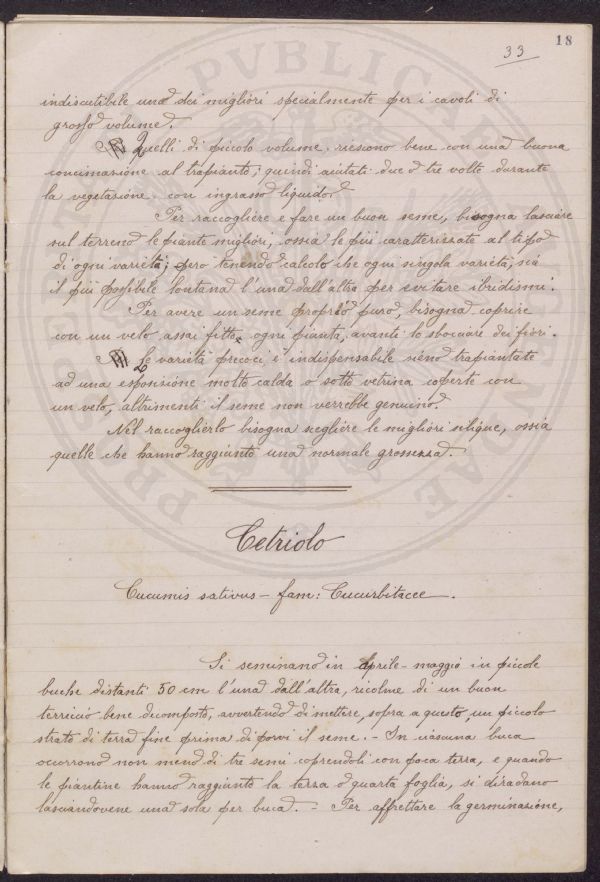 18
33
indiscutibile uno dei migliori specialmente per i cavoli di
grosso volume.
Quelli di piccolo volume, riesono bene con una buona
concimazione al trapianto; quindi aiutati due o tre volte durante
la vegetazione con ingrasso liquido.
Per raccogliere e fare un buon seme, bisogna lasciare
sul terreno le piante migliori, ossia le più caratterizzate al tipo
di ogni varietà; però tenendo calcolo che ogni singola varietà, sia
il più possibile lontana l'una dall'altra per evitare ibridismi.
Per avere un seme proprio puro, bisogna coprire
con un velo assai fitto ogni pianta, avanti lo sbocciare dei fiori.
le varietà precoci è indispensabile siено trapiantate
ad una esposizione molto calda o sotto vetrina coperte con
un velo, altrimenti il seme non verrebbe genuino.
Nel raccoglierlo bisogna scegliere le migliori silique, ossia
quelle che hanno raggiunto una normale grossezza.
Cetriolo
Cucumis sativus - fam: Cucurbitacee.
Si seminano in aprile - maggio in piccole
buche distanti 50 cm l'una dall'altra, ricolme di un buon
terriccio bene decomposto, avvertendo di mettere, sopra a questo, un piccolo
strato di terra fine prima di porvi il seme. - In ciascuna buca
ocorrono non meno di tre semi coprendoli con poca terra, e quando
le piantine hanno raggiunto la terza o quarta foglia, si diradano
lasciandovene una sola per buca. - Per affrettare la germinazione,